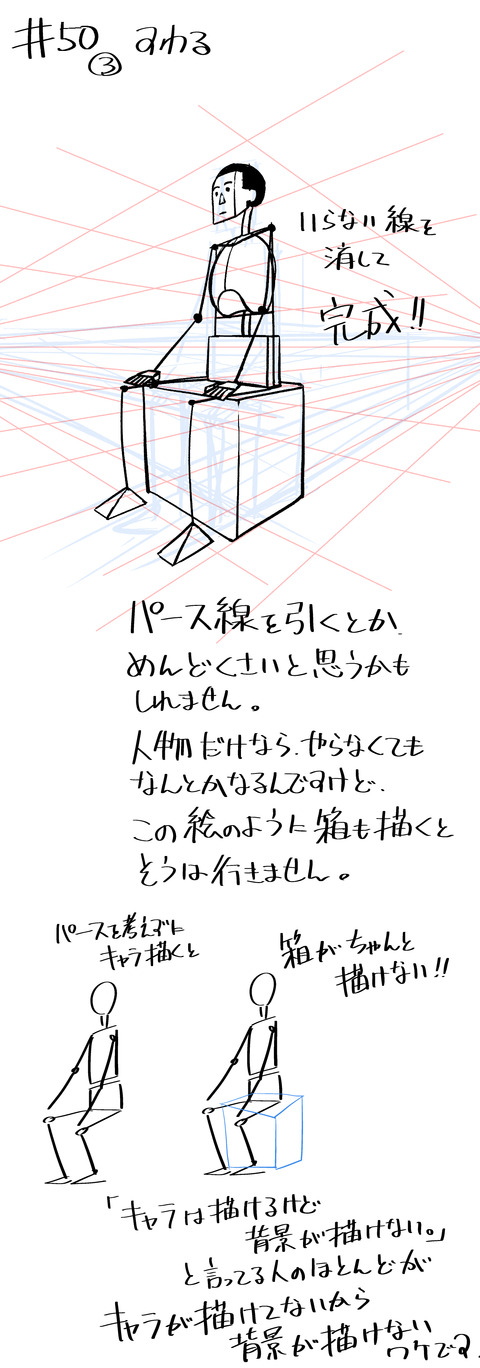 #50 すわる
③
いらない線を
消して
完成!!
パース線を引くとか、
めんどくさいと思うかも
しれません。
人物だけなら、やらなくても
なんとかなるんですけど、
この絵のように箱も描くと
そうは行きません。
パースを考えずに
キャラ描くと
箱がちゃんと
描けない!!
「キャラは描けるけど
背景が描けない。」
と言ってる人のほとんどが
キャラが描けてないから
背景が描けない
ワケです。